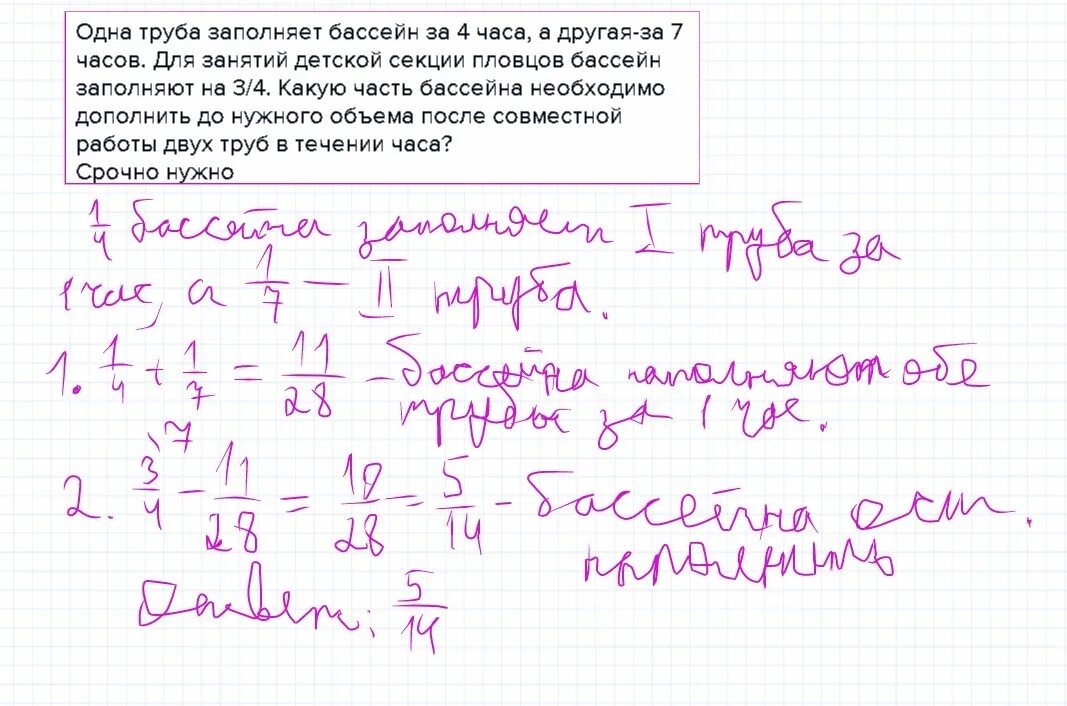 Одна труба заполняет бассейн за 4 часа, а другая-за 7
часов. Для занятий детской секции пловцов бассейн
заполняют на 3/4. Какую часть бассейна необходимо
дополнить до нужного объема после совместной
работы двух труб в течении часа?
Срочно нужно
1/4 бассейна заполняет I труба за
1 час, а 1/7 — II труба.
1. 1/4 + 1/7 = 11/28 - бассейна наполняют обе
трубы за 1 час.
2. 3/4 \7 - 11/28 = 10/28 = 5/14 - бассейна ост.
наполнить
Ответ: 5/14